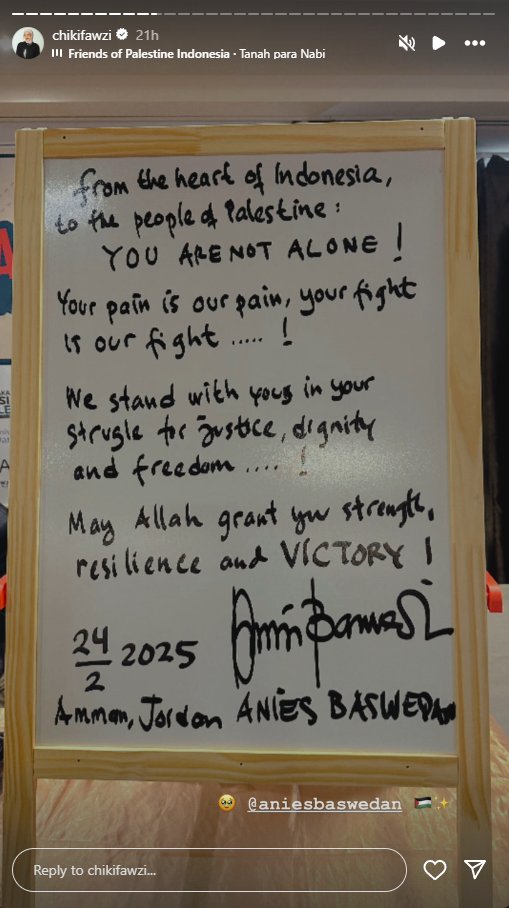 chikifawzi 21h
Friends of Palestine Indonesia · Tanah para Nabi
from the heart of Indonesia,
to the people of Palestine :
YOU ARE NOT ALONE !
Your pain is our pain, your fight
is our fight ..... !
We stand with you in your
strugle for justice, dignity
and freedom .... !
May Allah grant you strength,
resilience and VICTORY !
24/2 2025
Amman, Jordan ANIES BASWEDAN
@aniesbaswedan
Reply to chikifawzi...